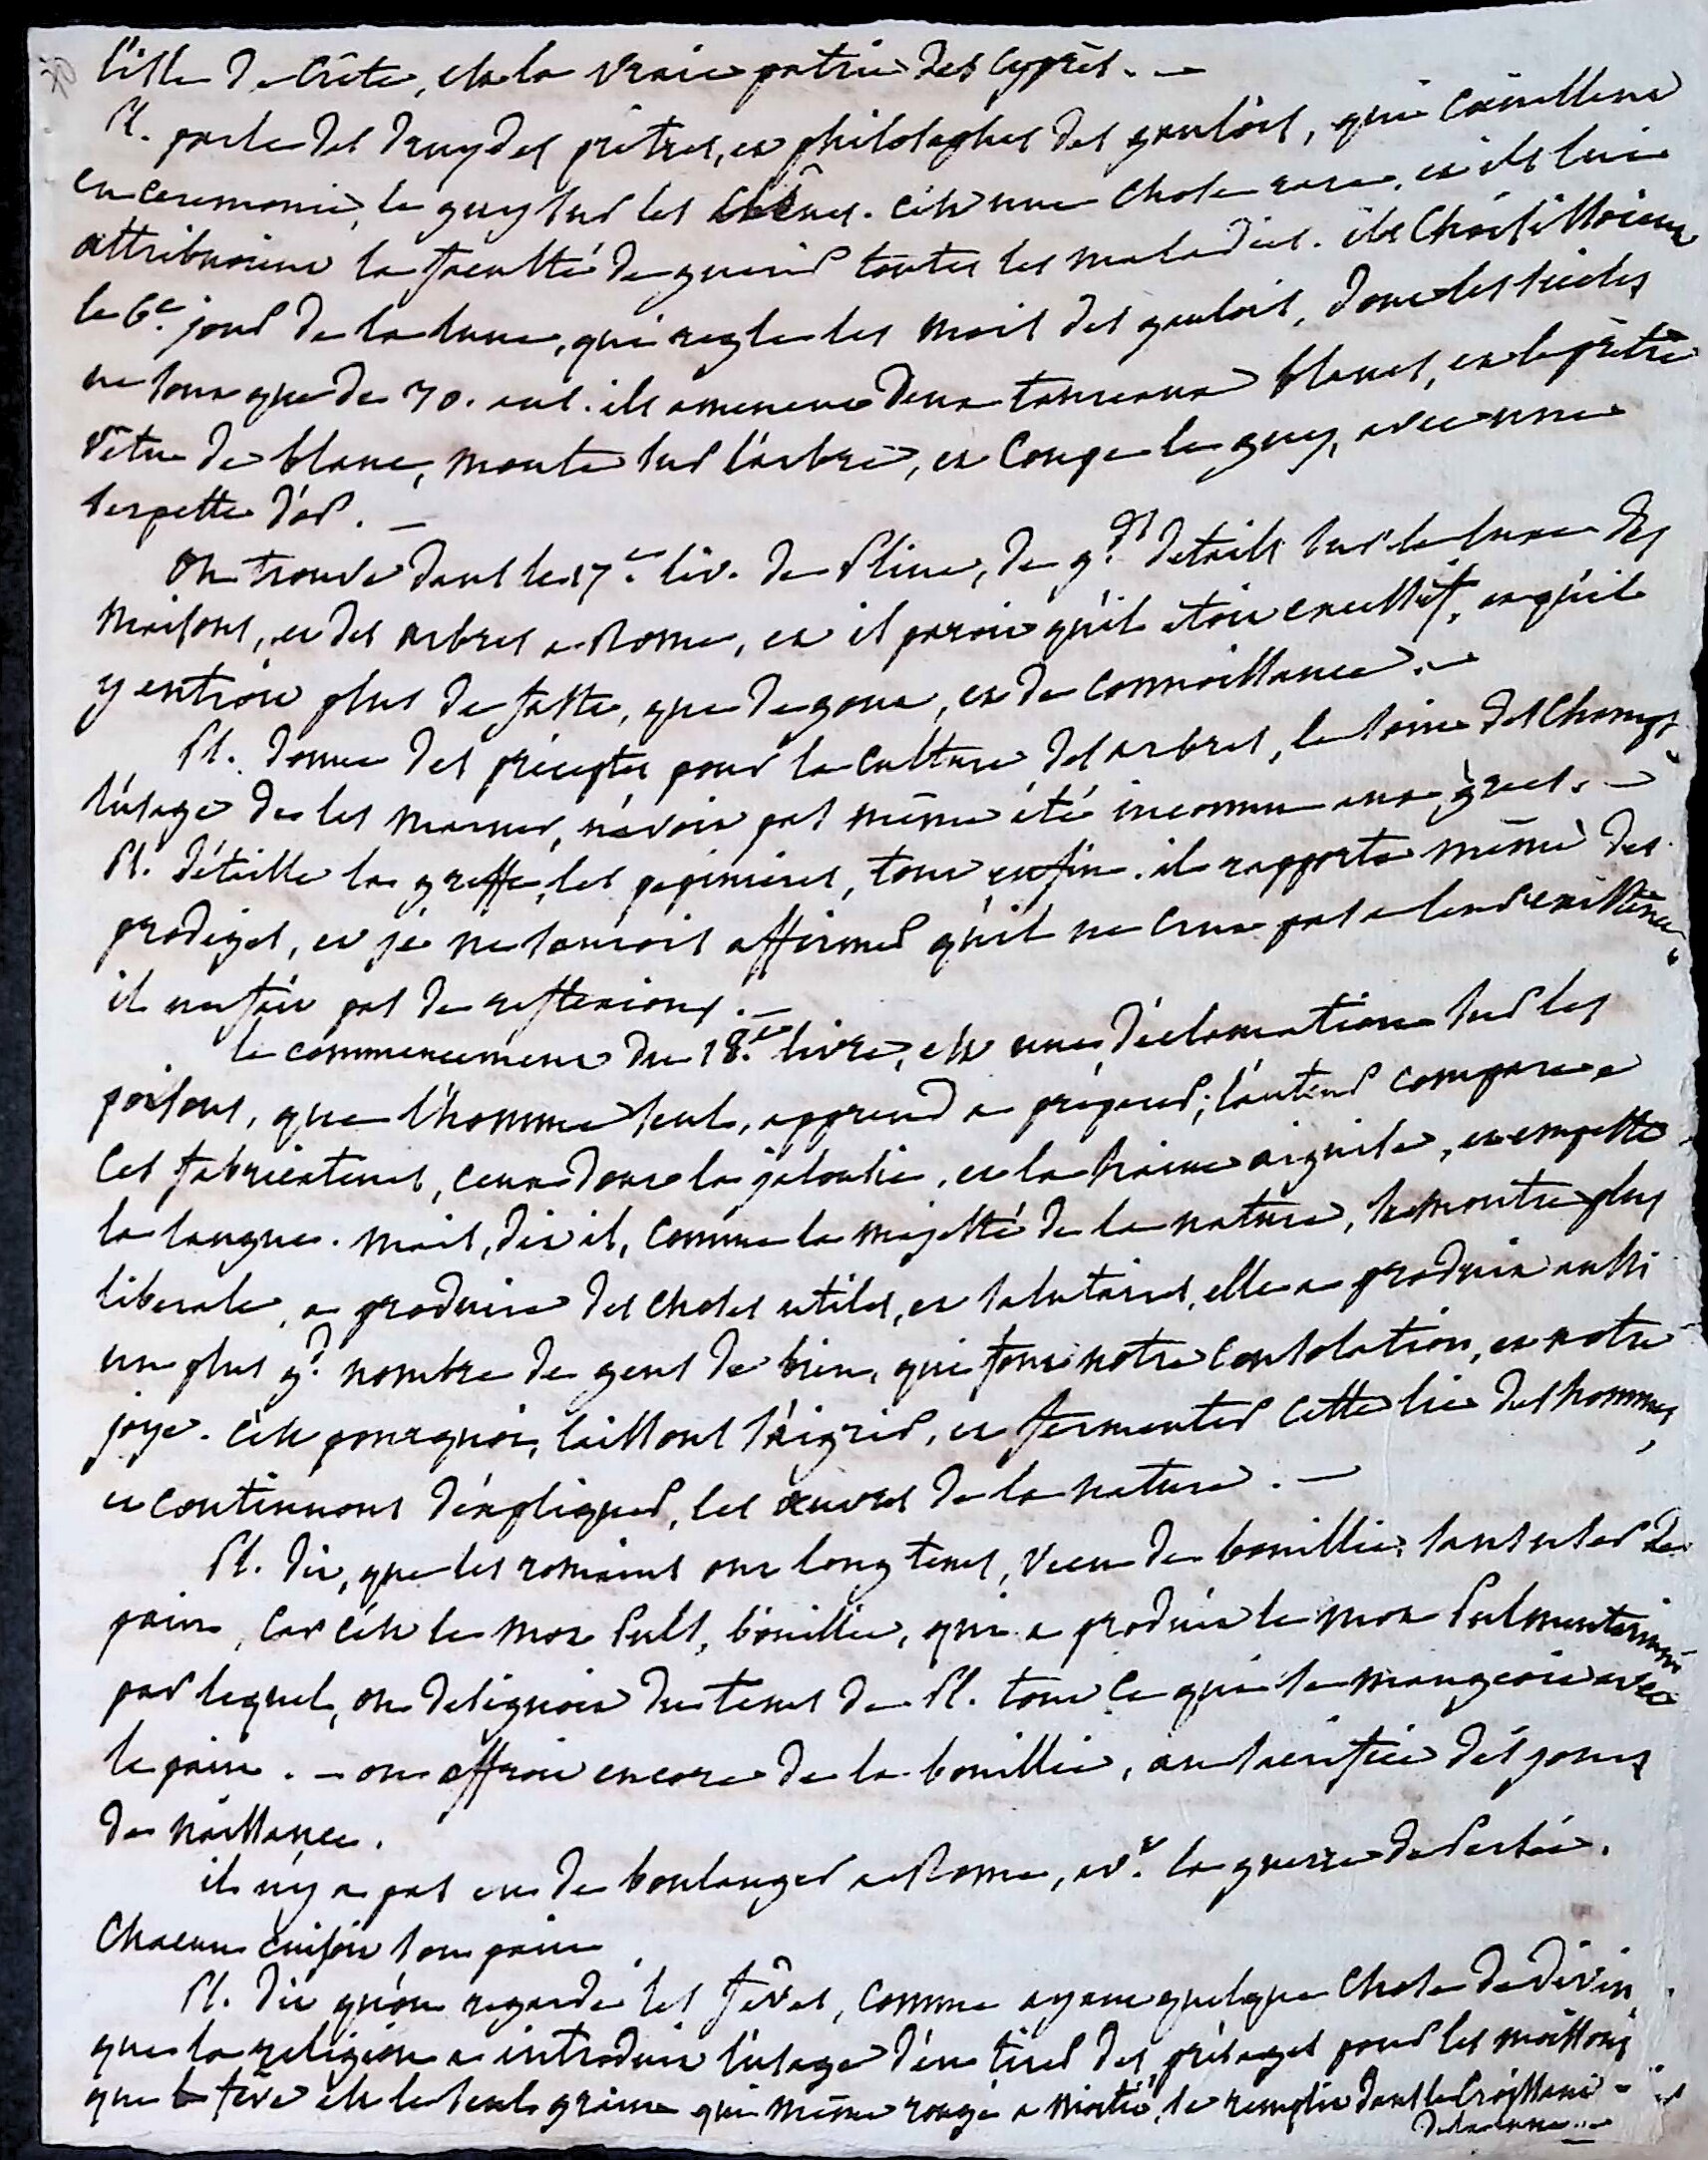 l'isle de Crête, est la vraie patrie des cyprès. —
Pl. parle des druydes prêtres, et philosophes des gaulois, qui cueillent
en ceremonie, le guy sur les chênes. c'est une chose rare. et ils lui
attribuoient la faculté de guerir toutes les maladies. ils choisissoient
le 6.e jour de la lune, qui regle les mois des gaulois, dont les siecles
ne sont que de 30. ans. ils amenent deux taureaux blancs, et le prêtre
vêtu de blanc, monte sur l'arbre, et coupe le guy, avec une
serpette d'or. —
On trouve dans le 17.e liv. de Pline, de g.ds details sur le luxe des
maisons, et des arbres a Rome, et il paroit qu'il etoit excessif, et qu'il
y entroit plus de faste, que de gout, et de connoissance. —
Pl. donne des préceptes pour la culture des arbres, le soin des champs
l'usage de les marner, n'avoit pas même été inconnu aux grecs. —
Pl. détaille la greffe, les pepinieres, tout enfin. il rapporte même des
prodiges, et je ne saurois affirmer qu'il ne crut pas a leur existence,
il ne fait pas de reflexions. —
le commencement du 18.e livre, est une déclamation sur les
poisons, que l'homme seul, apprend a préparer; l'auteur compare a
ces fabricateurs, ceux dont la jalousie, et la haine aiguise, et empeste
la langue. mais, dit il, comme la majesté de la nature, se montre plus
liberale, a produire des choses utiles, et salutaires, elle a produit aussi
un plus g.d nombre de gens de bien, qui font notre consolation, et notre
joye. c'est pourquoi, laissons s'aigrir, et fermenter cette lie des hommes,
et continuons d'expliquer, les œuvres de la nature. —
Pl. dit, que les romains ont long tems, vecu de bouillie, sans user de
pain, car c'est le mot Puls, bouillie, qui a produit le mot Pulmentarium
par lequel, on designoit du tems de Pl. tout ce qui se mangeoit avec
le pain. — on offroit encore de la bouillie, au sacrifice des jours
de naissance.
il n'y a pas eu de boulanger a Rome, av.t la guerre de Persée.
Chacun cuisoit son pain.
Pl. dit qu'on regarde les fêves, comme ayant quelque chose de divin,
que la religion a introduit l'usage d'en tirer des présages pour les moissons
que la fêve est le seul grain qui même rongé a moitié, se remplit dans le croissant
de la lune. —